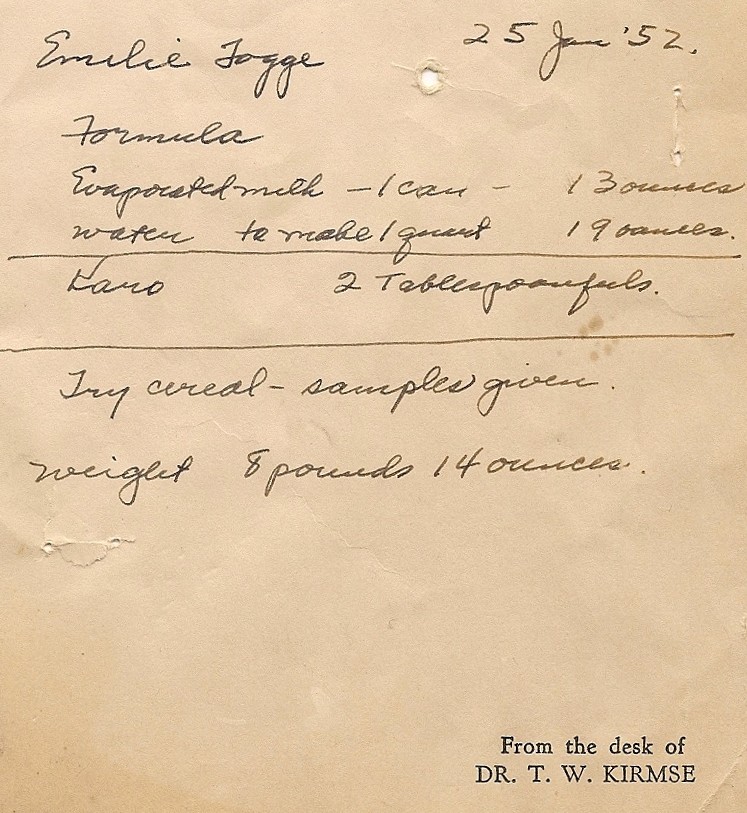 Emilie Fogge 25 Jan '52.
Formula
Evaporated milk - 1 can - 13 ounces
water to make 1 quart 19 ounces.
Karo 2 Tablespoonfuls.
Try cereal - samples given.
weight 8 pounds 14 ounces.
From the desk of
DR. T. W. KIRMSE